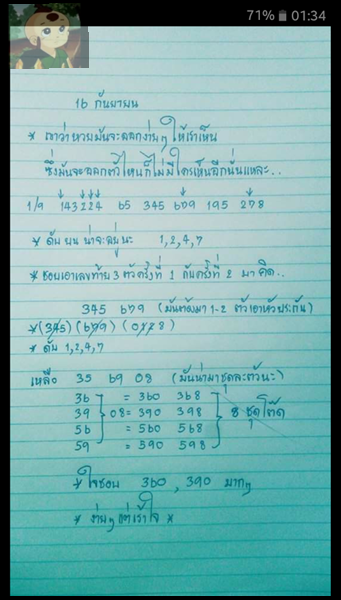 71% 01:34
16 กันยายน
* เขาว่าหวยมันจะออกง่ายๆ ให้เราเห็น
ซึ่งมันจะออกตัวไหนก็ไม่มีใครเห็นอีกนั่นแหละ..
1/9 143224 65 345 679 195 278
* ดับ บน น่าจะอยู่นะ 1,2,4,7
* ชอบเอาเลขท้าย 3 ตัวครั้งที่ 1 กับครั้งที่ 2 มาคิด..
345 679 (มันตัดมา 1-2 ตัวเอาหัวประกัน)
* (345) (679) (028)
* ดับ 1,2,4,7
เหลือ 35 69 08 (มันน่ามาชุดละตัวนะ)
36 = 360 368
39 08 = 390 398 8 ชุดโต๊ด
56 = 560 568
59 = 590 598
* ใจชอบ 360 , 390 มากๆ
* ง่ายๆ แต่เร้าใจ *